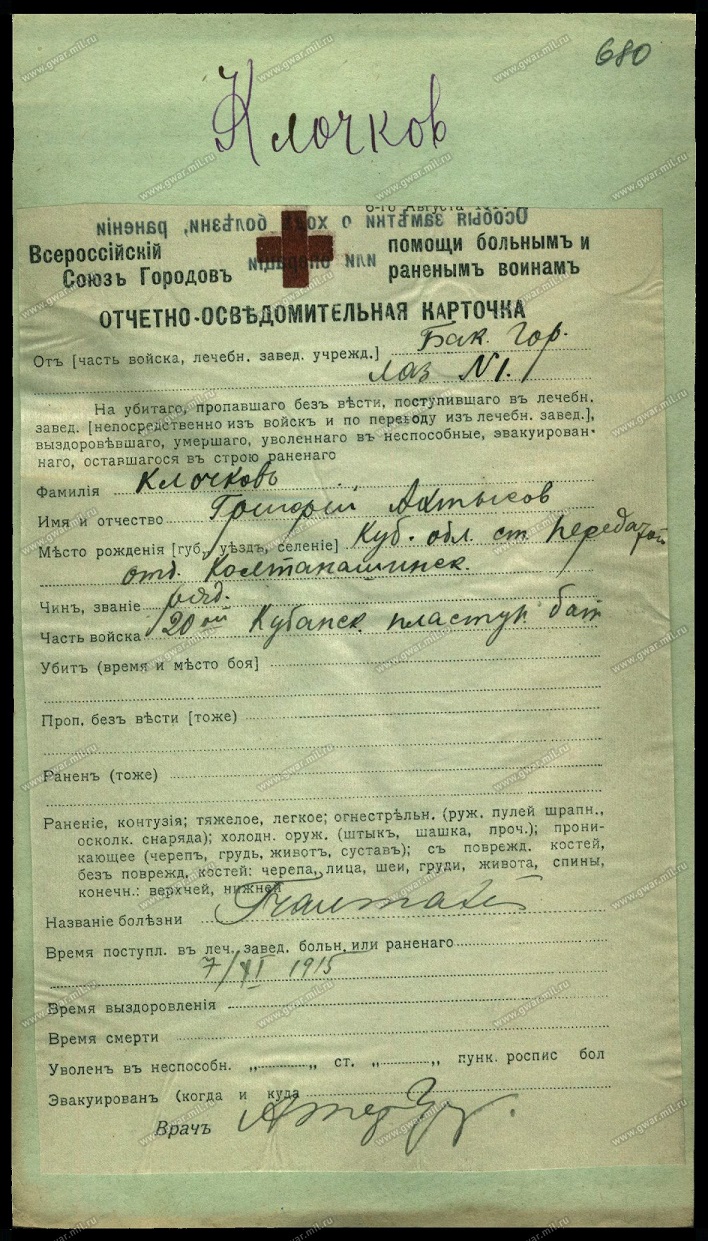 680
Клочков
6-го Августа
Особыя замѣтки о ходѣ болѣзни, раненіи
или операціи
Всероссійскій
Союзъ Городовъ
помощи больнымъ и
раненымъ воинамъ
ОТЧЕТНО-ОСВѢДОМИТЕЛЬНАЯ КАРТОЧКА
Отъ [часть войска, лечебн. завед. учрежд.] Бак. Гор.
лаз №1.
На убитаго, пропавшаго безъ вѣсти, поступившаго въ лечебн.
завед. [непосредственно изъ войскъ и по переводу изъ лечебн. завед.],
выздоровѣвшаго, умершаго, уволеннаго въ неспособные, эвакуирован-
наго, оставшагося въ строю раненаго
Фамилія Клочковъ
Имя и отчество Григорій
Мѣсто рожденія [губ., уѣздъ, селеніе] Куб. обл. ст.
отд.
Чинъ, званіе ряд.
Часть войска 20ой Кубанск пластун бат
Убитъ (время и мѣсто боя]
Проп. безъ вѣсти [тоже)
Раненъ (тоже)
Раненіе, контузія; тяжелое, легкое; огнестрѣльн. (руж. пулей шрапн.,
осколк. снаряда); холодн. оруж. (штыкъ, шашка, проч.); прони-
кающее (черепъ, грудь, животъ, суставъ); съ поврежд. костей,
безъ поврежд. костей: черепа, лица, шеи, груди, живота, спины,
конечн.: верхней, нижней
Названіе болѣзни
Время поступл. въ леч. завед. больн. или раненаго
7/XI 1915
Время выздоровленія
Время смерти
Уволенъ въ неспособн. „ „ ст. „ „ пунк. роспис бол
Эвакуированъ (когда и куда
Врачъ